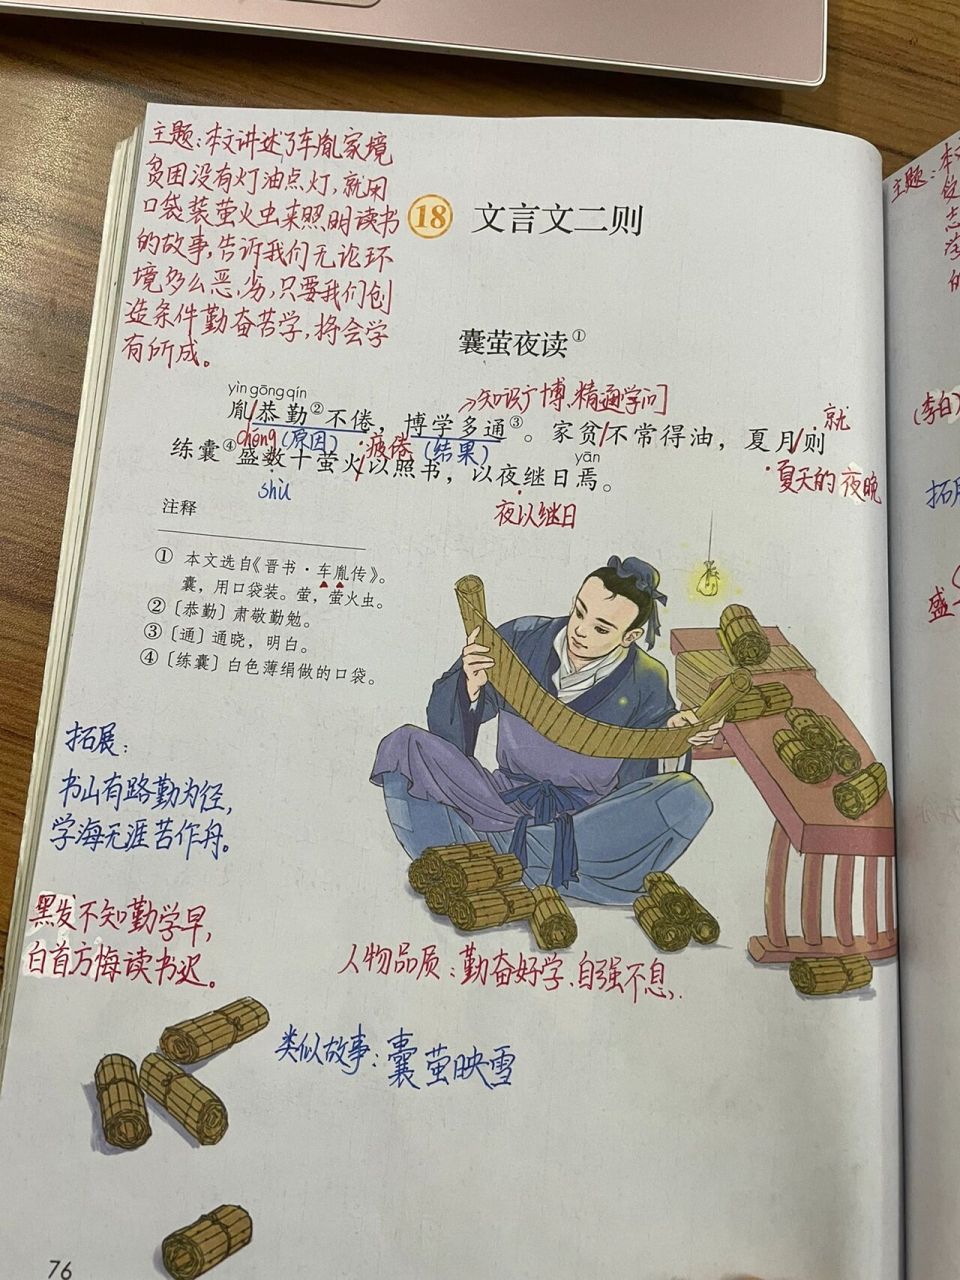 主题:本文讲述了车胤家境
贫困没有灯油点灯,就用
口袋装萤火虫来照明读书
的故事,告诉我们无论环
境多么恶劣,只要我们创
造条件勤奋苦学,将会学
有所成。
18 文言文二则
囊萤夜读①
yìn gōng qín
→知识广博、精通学问
胤恭勤②不倦，博学多通③。家贫不常得油，夏月则
就
chéng (原因) 疲倦 (结果)
yān
练囊④盛数十萤火以照书，以夜继日焉。
夏天的夜晚
shù
夜以继日
注释
① 本文选自《晋书·车胤传》。
囊，用口袋装。萤，萤火虫。
② 〔恭勤〕肃敬勤勉。
③ 〔通〕通晓，明白。
④ 〔练囊〕白色薄绢做的口袋。
拓展:
书山有路勤为径,
学海无涯苦作舟。
黑发不知勤学早,
白首方悔读书迟。
人物品质:勤奋好学、自强不息
类似故事:囊萤映雪
76
主题:本
志
的
(李白)
拓展
盛